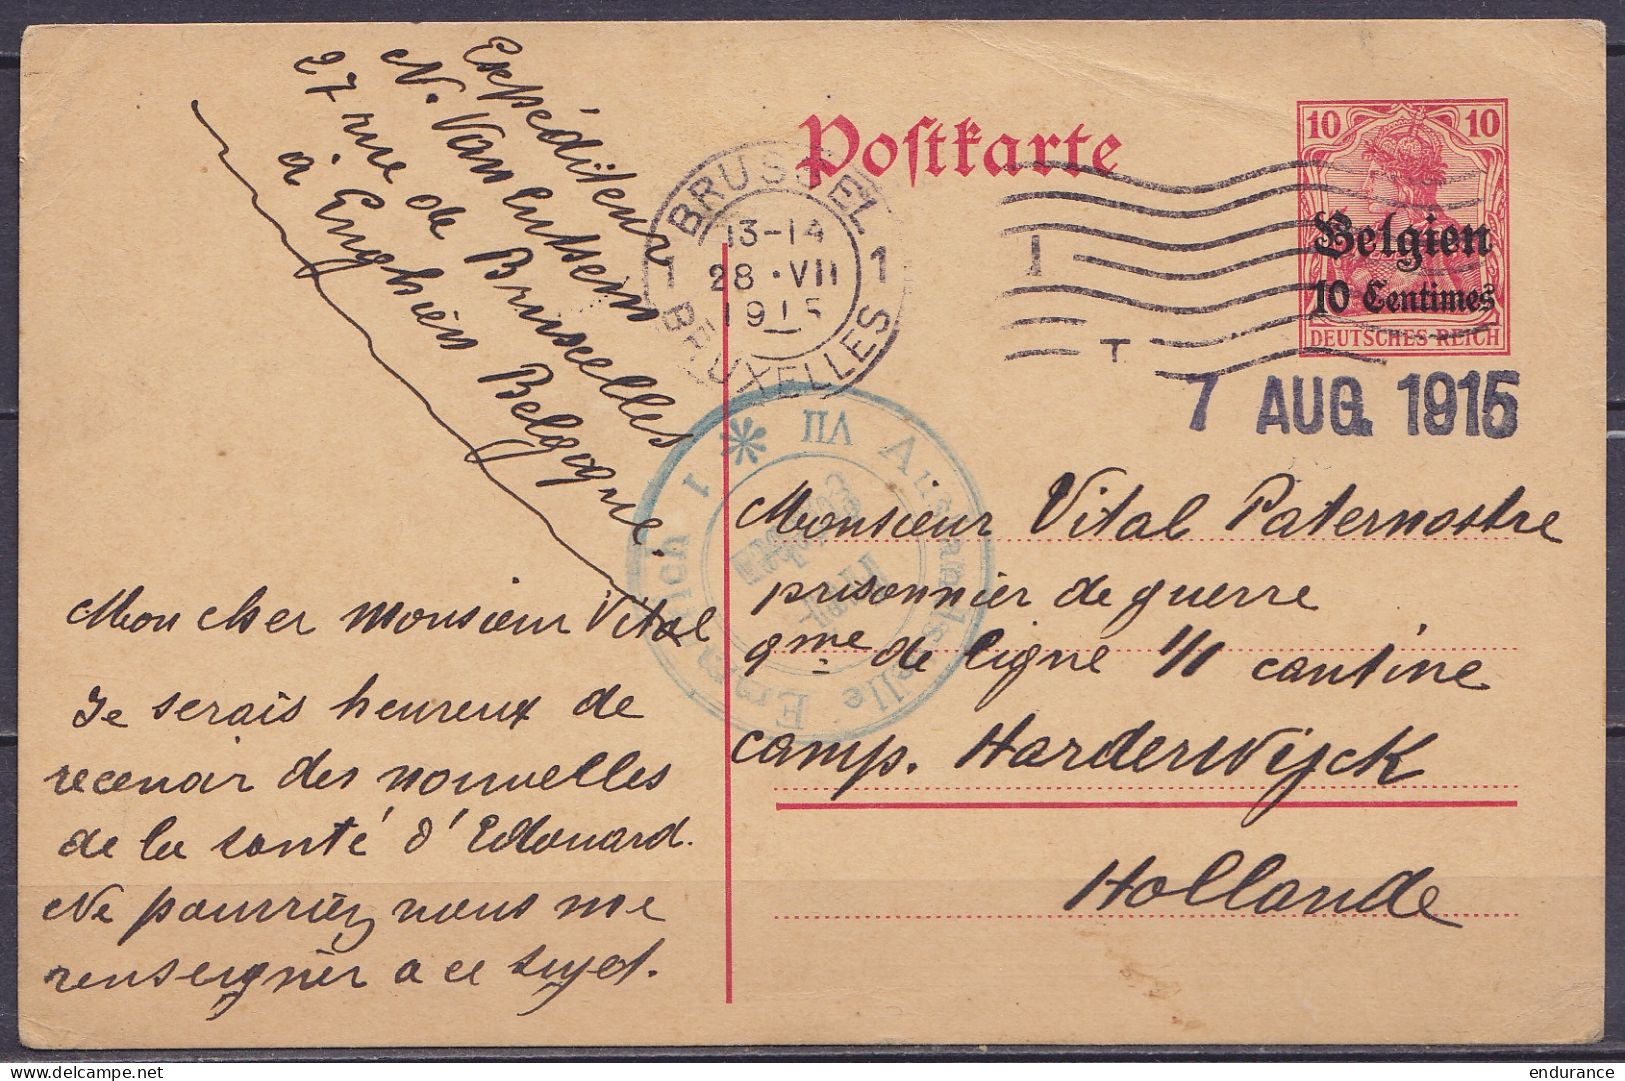 Expéditeur
N. Van Lutsem
27 rue de Bruxelles
à Enghien Belgique.
Postkarte
BRUSSEL
13-14
1 28·VII 1
1915
BRUXELLES
1
T
10 10
Belgien
10 Centimes
DEUTSCHES REICH
7 AUG. 1915
Auslandsstelle Emmerich 1 * VII
Frei
Monsieur Vital Paternostre
prisonnier de guerre
9me de ligne 1/1 cantine
camp. Harderwijck
Hollande
Mon cher monsieur Vital
Je serais heureux de
recevoir des nouvelles
de la santé d'Edouard.
Ne pourriez vous me
renseigner à ce sujet.